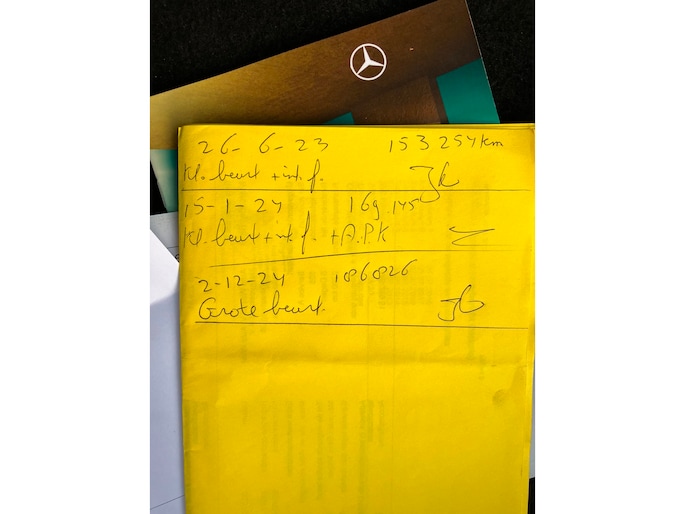 26-6-23 153254km
Kl. beurt + int. f.
15-1-24 169.145
Kl. beurt + int. f. + A.P.K
2-12-24 186826
Grote beurt.